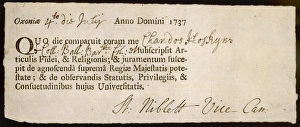 Oxoniæ 4to die Julij Anno Domini 1737
QUO die comparuit coram me Chandos Hoskyns
è Coll: Ball: Bar: Fil: & Subscripsit Ar-
ticulis Fidei, & Religionis; & juramentum susce-
pit de agnoscendâ supremâ Regiæ Majestatis pote-
state; & de observandis Statutis, Privilegiis, &
Consuetudinibus hujus Universitatis.
St. Niblett Vice-Can.